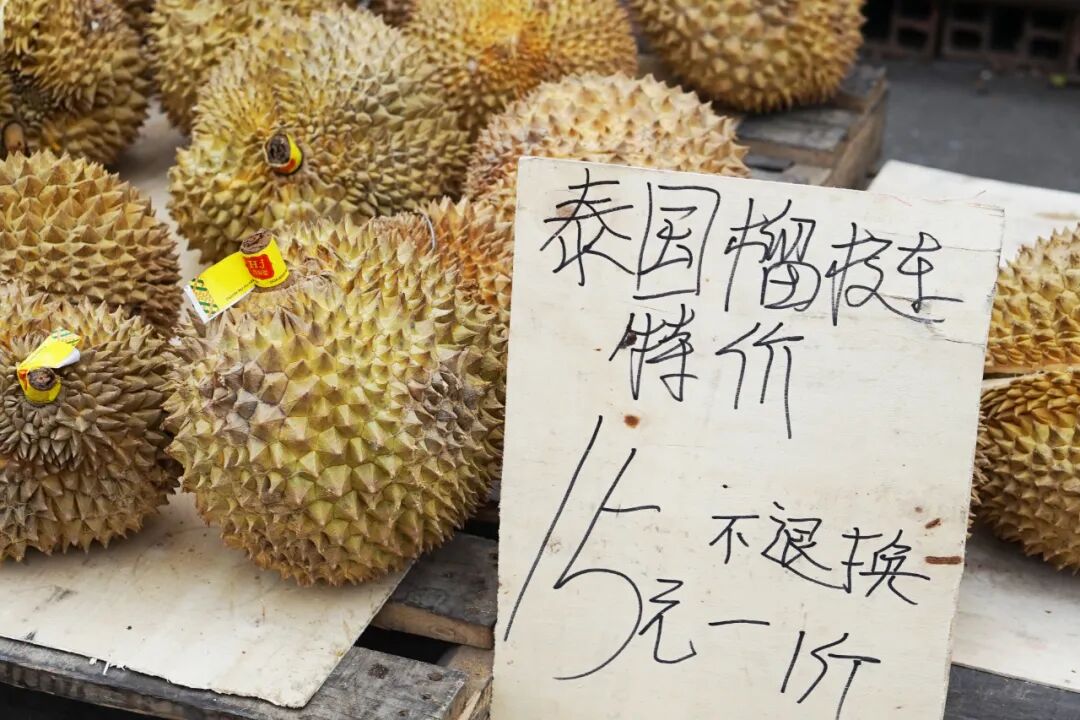 泰国榴梿
特价
不退换
15元一斤
HJ